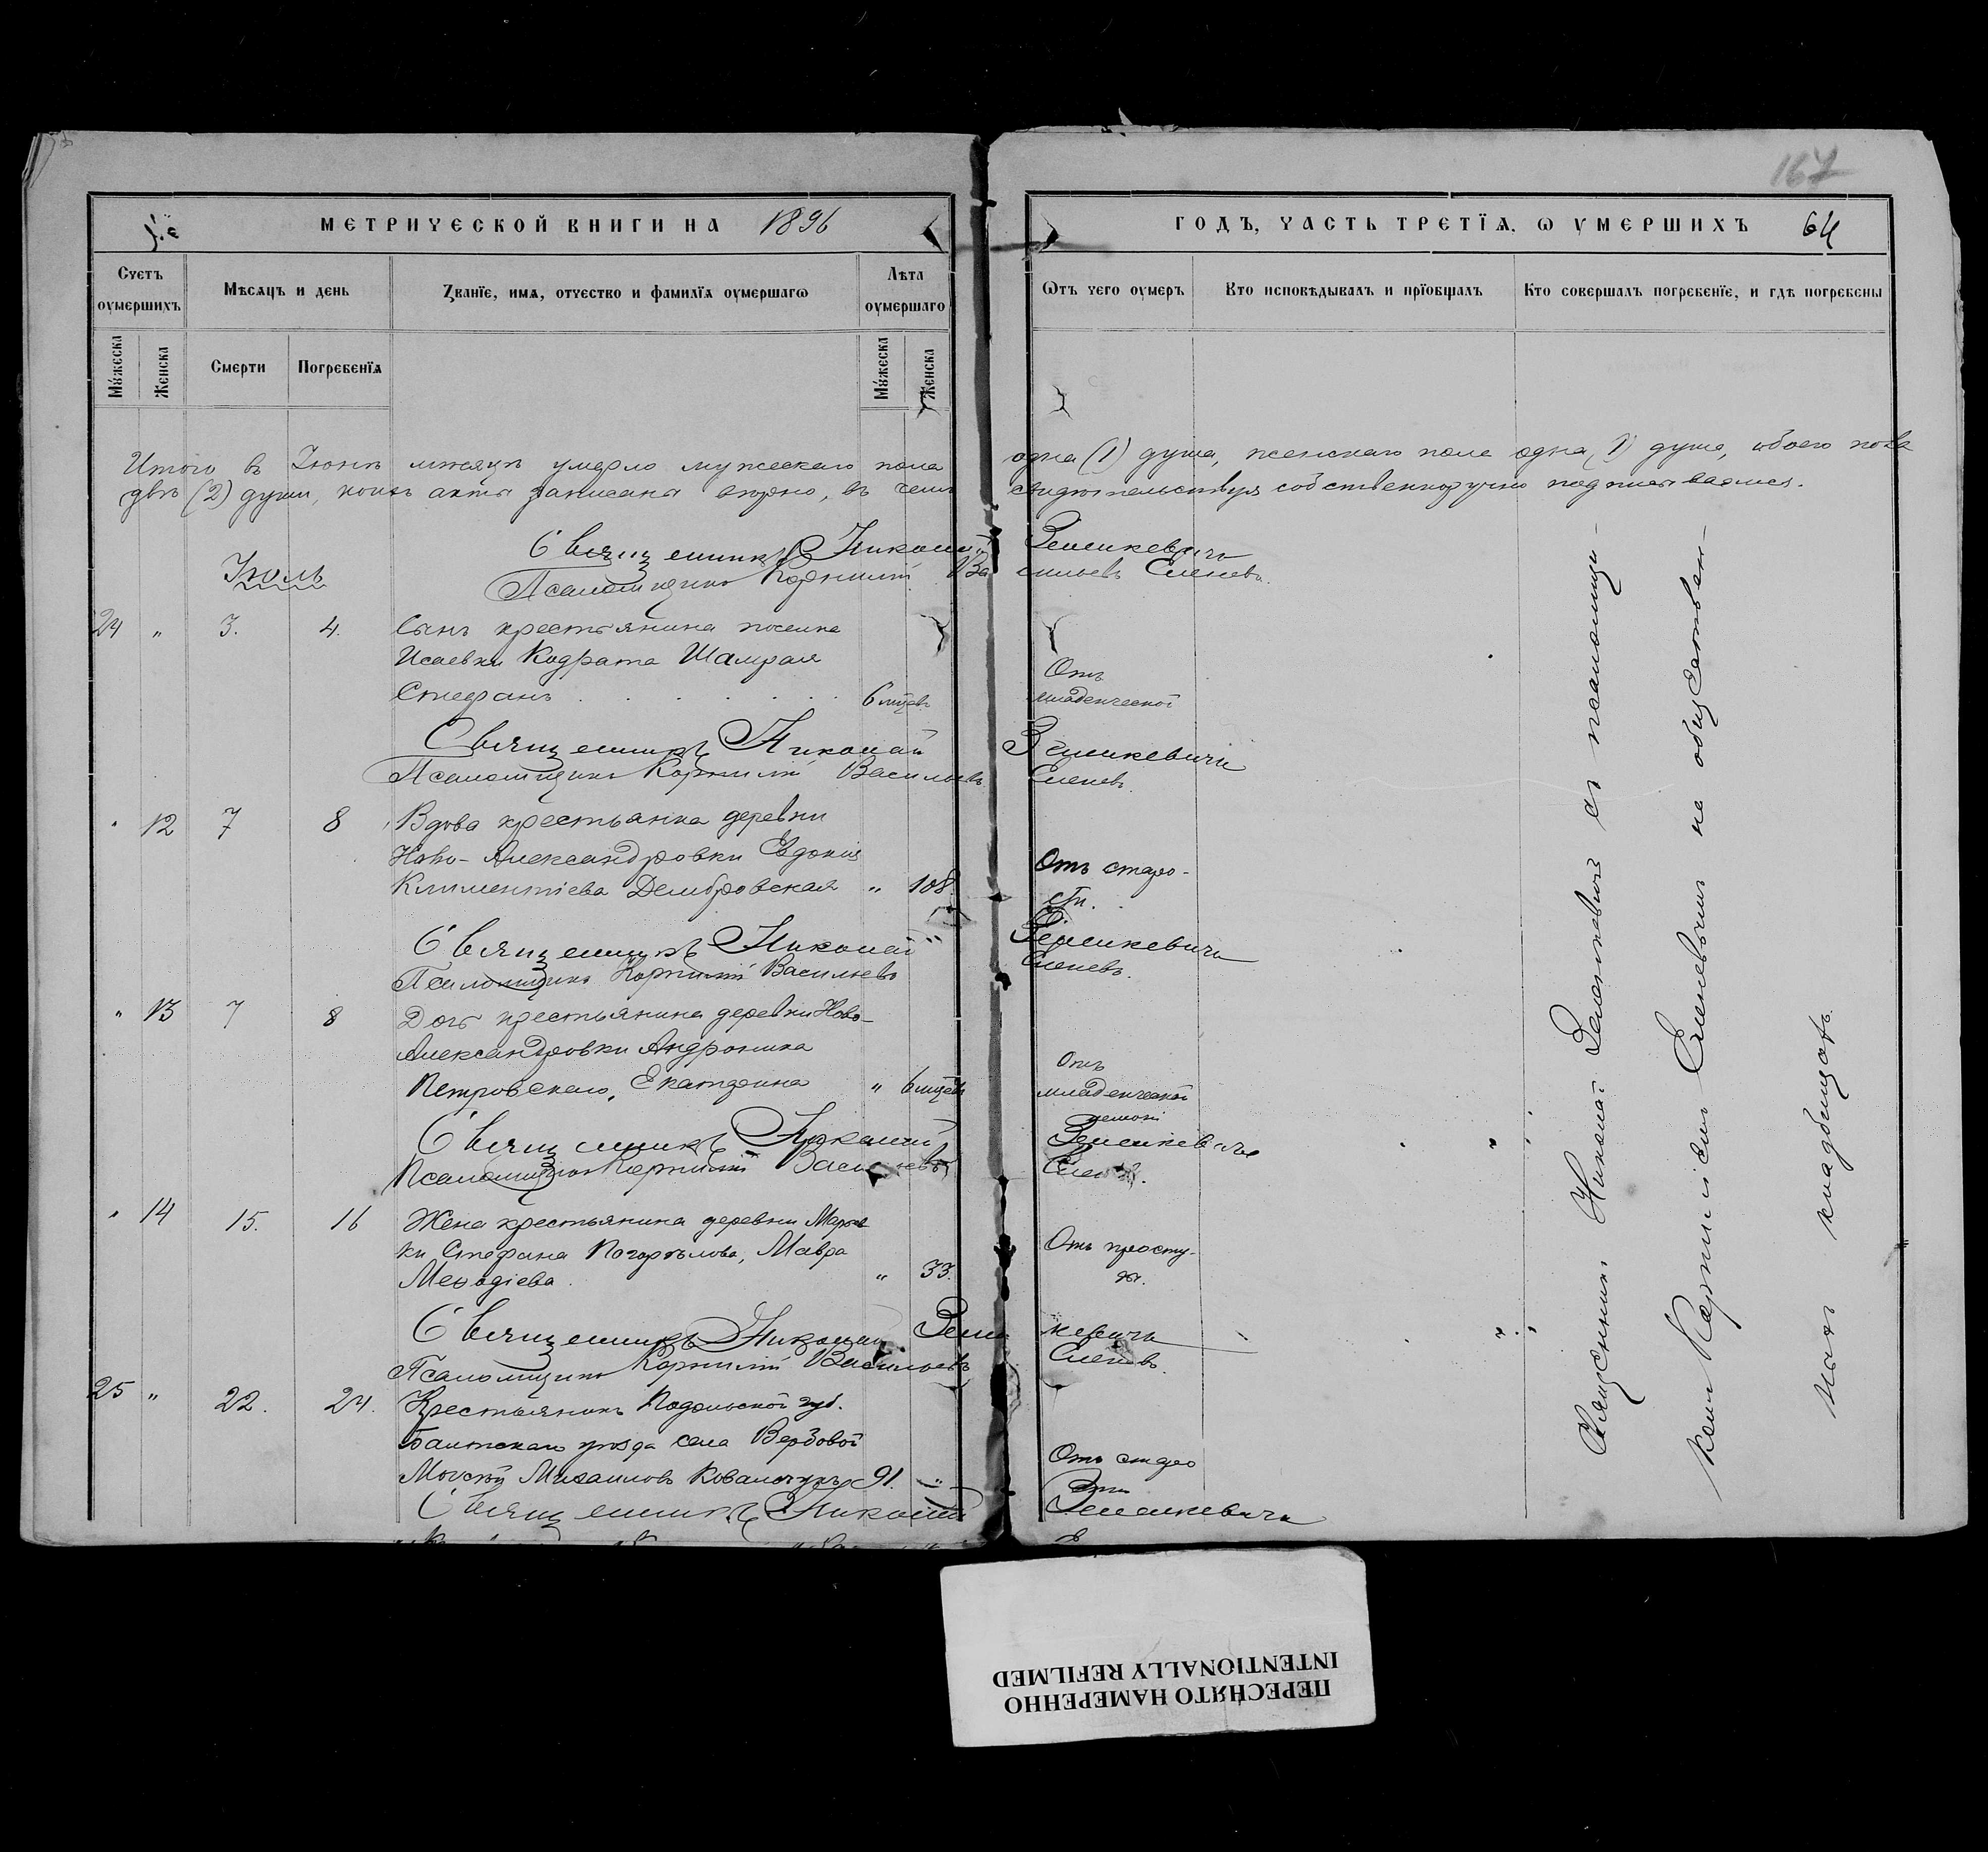 167
МЕТРИЧЕСКОЙ КНИГИ НА 1896
ГОДЪ, ЧАСТЬ ТРЕТЇѦ, Ѡ УМЕРШИХЪ 64
Счетъ оумершихъ
Мѣсѧцъ и день
Званїе, имѧ, отчество и фамилїѧ оумершагѡ
Лѣта оумершаго
Ѿтъ чего оумеръ
Кто исповѣдывалъ и прїобщалъ
Кто совершалъ погребенїе, и гдѣ погребены
Мꙋжеска
Женска
Смерти
Погребенїѧ
Мꙋжеска
Женска
Итого въ Іюнѣ мѣсяцѣ умерло мужескаго пола одна (1) душа, женскаго пола одна (1) душа, обоего пола
двѣ (2) души, коихъ акты записаны вѣрно, въ чемъ свидѣтельствуя собственноручно подписываемся.
Священникъ Николай Зеленкевичъ
Псаломщикъ Корнилій Васильевъ Еленевъ.
Іюль
24 " 3. 4. Сынъ крестьянина поселка
Исаевки Кодрата Шамрая
Стефанъ 6 мцевъ
Отъ
младенческой
Священникъ Николай Зеленкевичъ
Псаломщикъ Корнилій Васильевъ Еленевъ.
" 12 7 8 Вдова крестьянка деревни
Ново-Александровки Евдокія
Климентіева Домбровская " 108.
Отъ старо-
сти.
Священникъ Николай Зеленкевичъ
Псаломщикъ Корнилій Васильевъ Еленевъ.
" 13 7 8 Дочь крестьянина деревни Ново-
Александровки Андроника
Петровскаго, Екатерина " 6 мцевъ
Отъ
младенческой
Священникъ Николай Зеленкевичъ
Псаломщикъ Корнилій Васильевъ Еленевъ.
" 14 15. 16 Жена крестьянина деревни
ки Стефана Погорѣлова, Мавра
Меѳодіева " 33.
Отъ просту-
ды.
Священникъ Николай Зеленкевичъ
Псаломщикъ Корнилій Васильевъ Еленевъ.
25 " 22. 24. Крестьянинъ Подольской губ.
Балтскаго уѣзда села Вербовой
Моѵсей Михаиловъ Ковальчукъ 91. "
Отъ старо
сти
Священникъ Николай Зеленкевичъ
Священникъ Николай Зеленкевичъ съ псаломщи-
комъ Корниліемъ Еленевымъ на общественн-
номъ кладбищѣ.
ПЕРЕСНЯТО НАМЕРЕННО
INTENTIONALLY REFILMED